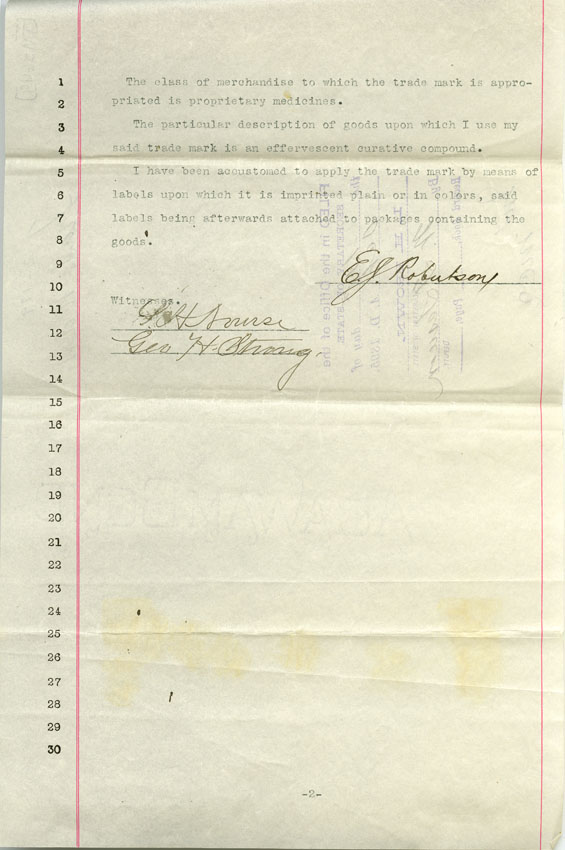 1 The class of merchandise to which the trade mark is appro-
2 priated is proprietary medicines.
3 The particular description of goods upon which I use my
4 said trade mark is an effervescent curative compound.
5 I have been accustomed to apply the trade mark by means of
6 labels upon which it is imprinted plain or in colors, said
7 labels being afterwards attached to packages containing the
8 goods.
9 E.J. Robertson
10 Witnesses.
11 H. Nourse
12
13 Geo. H. Strong.
14
15
16
17
18
19
20
21
22
23
24
25
26
27
28
29
30
-2-